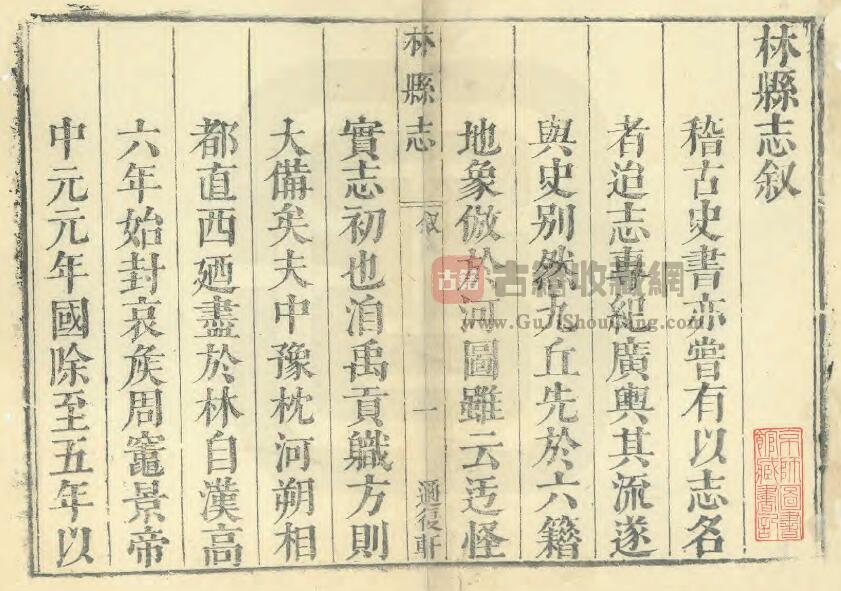 林縣志叙
稽古史書亦嘗有以志名
者迨志專紀廣輿其流遂
與史别然九丘先於六籍
地象倣於河圖雖云迃怪
林縣志
叙
一
實志初也洎禹貢職方則
大備矣夫中豫枕河朔相
都直西廼盡於林自漢高
六年始封哀矦周竈景帝
中元元年國除至五年以
古籍 古籍收藏網
www.GuJiShouCang.com